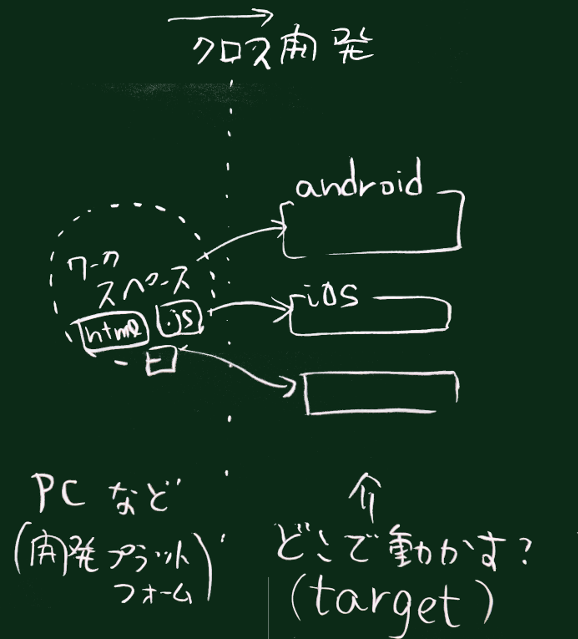 クロス開発
android
ワーク
スペース
iOS
html
js
PC など
(開発プラット
フォーム)
どこで動かす?
(target)